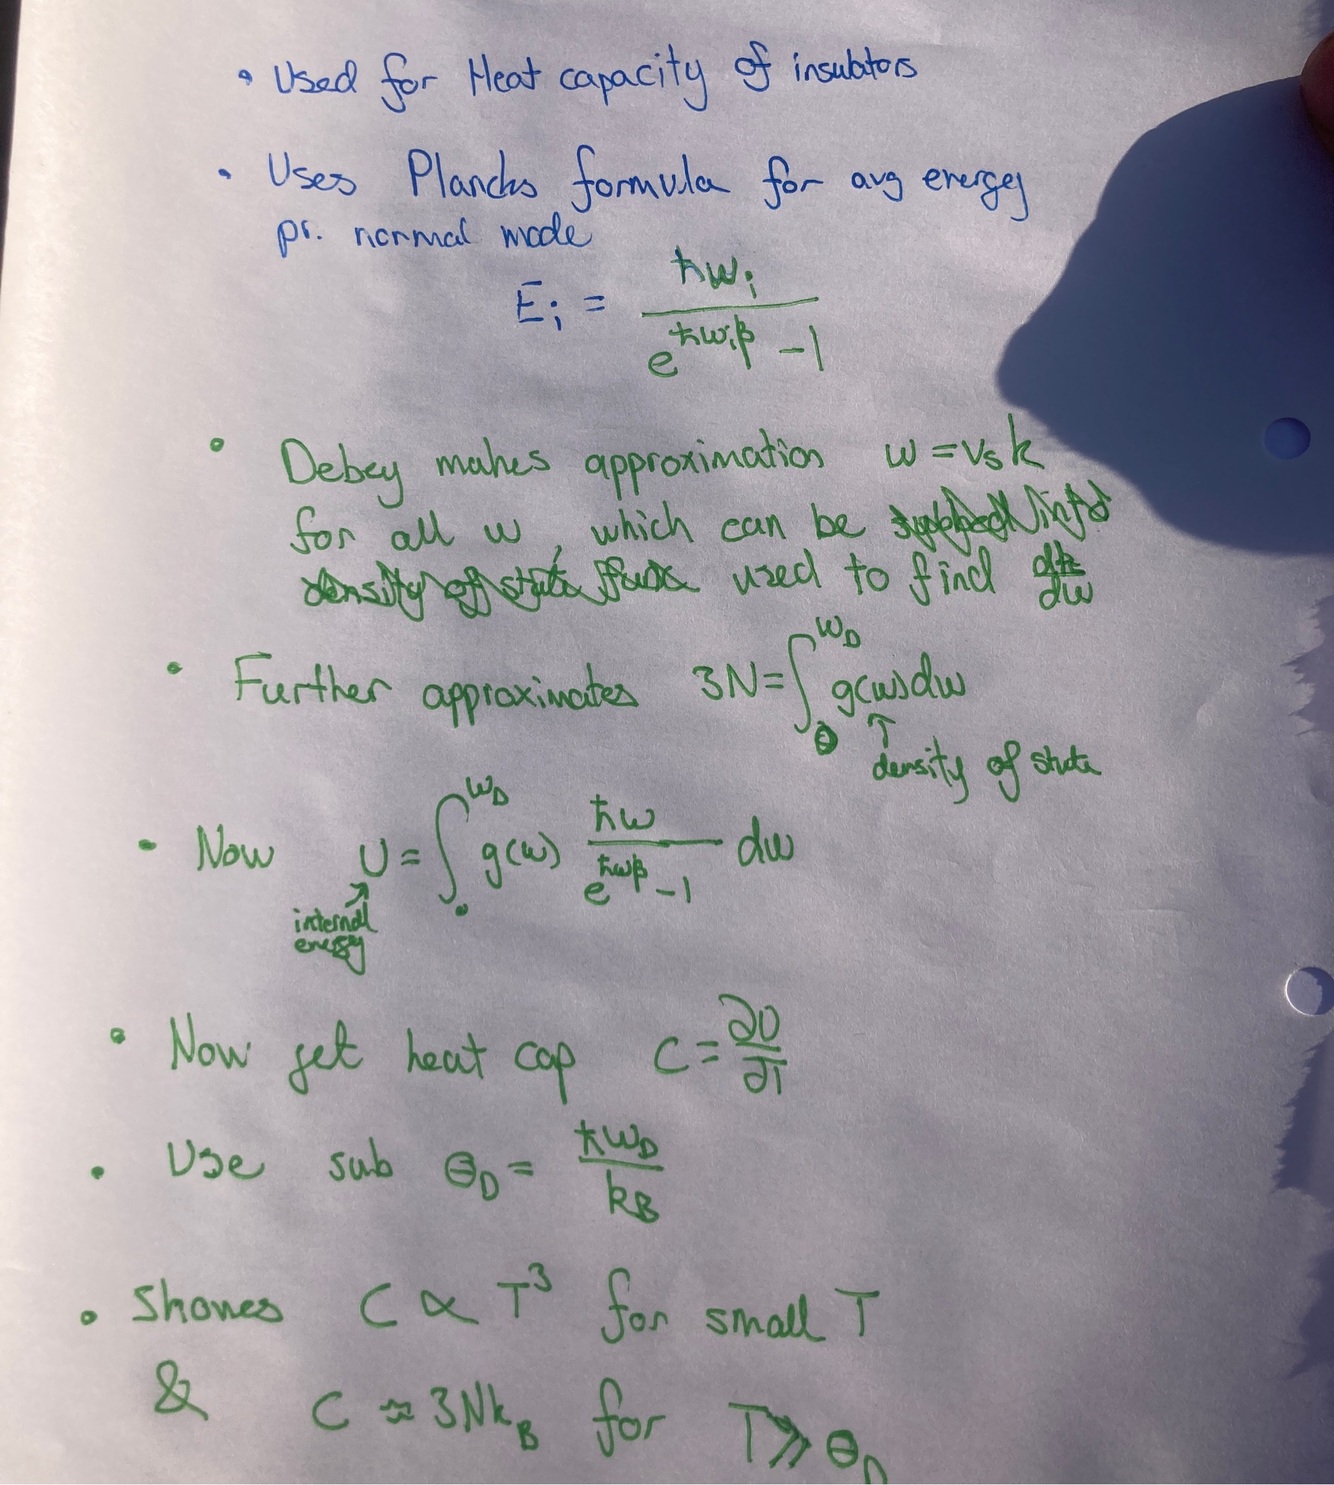 • Used for Heat capacity of insulators
• Uses Plancks formula for avg energy
pr. normal mode
E_i = ħω_i / (e^{ħω_iβ} - 1)
• Debey makes approximation ω = v_s k
for all ω, which can be
used to find dk/dω
• Further approximates 3N = ∫_0^{ω_D} g(ω)dω
↑
density of state
• Now U = ∫_0^{ω_D} g(ω) ħω / (e^{ħωβ} - 1) dω
↗
internal
energy
• Now get heat cap C = ∂U/∂T
• Use sub Θ_D = ħω_D / k_B
• Shows C ∝ T^3 for small T
& C ≈ 3Nk_B for T ≫ Θ_D